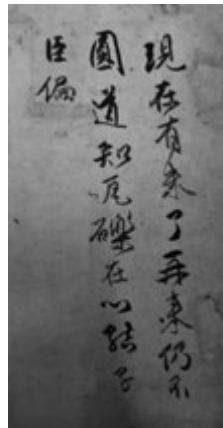 現在有来了再来仍不
圓道知瓦礫在心結子
臣偏